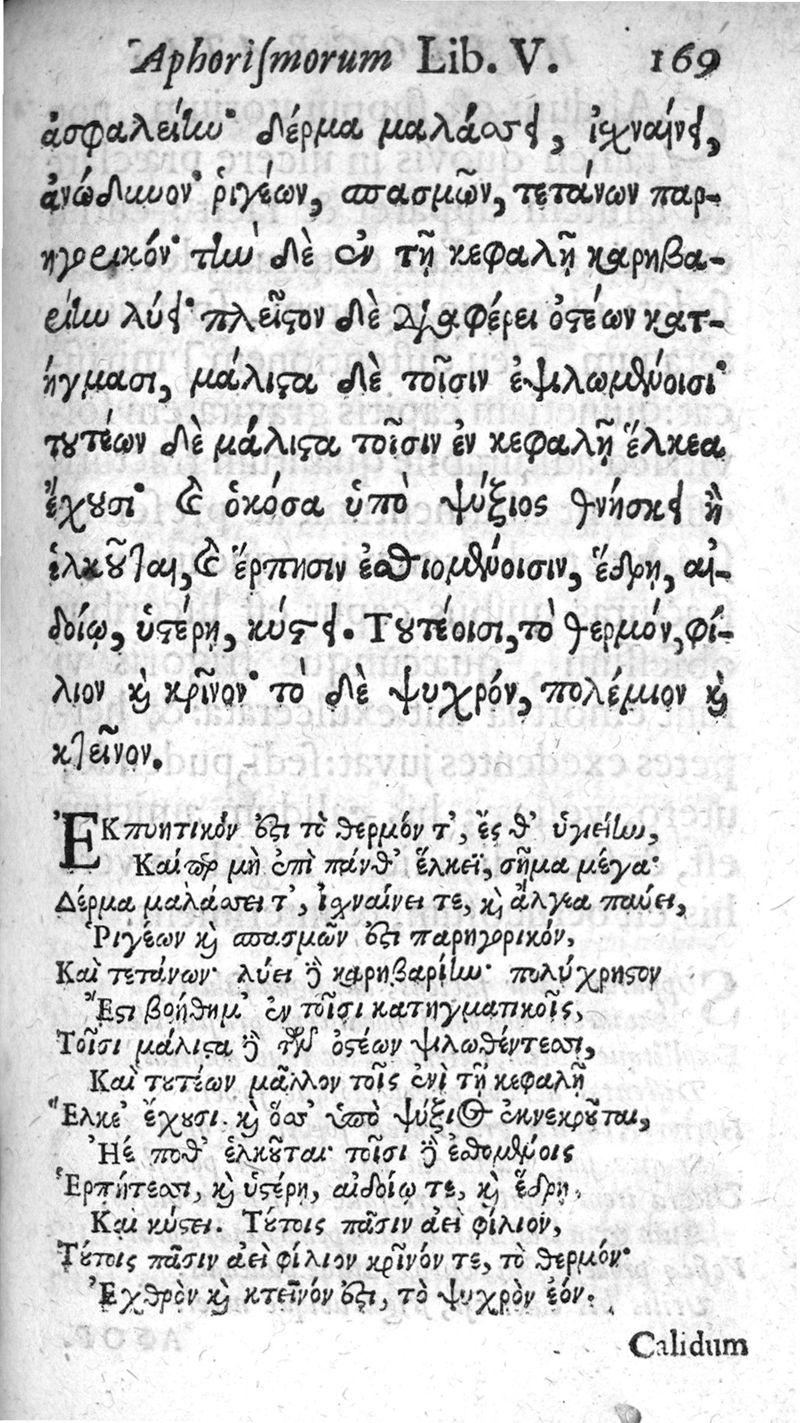 Aphoriſmorum Lib. V. 169
ἀσφαλείην· δέρμα μαλάσσει, ἰχναίνει,
ἀνώδυνον· ῥιγέων, σπασμῶν, τετάνων παρ-
ηγορικόν· τὴν δὲ ἐν τῇ κεφαλῇ καρηβα-
ρίην λύει· πλεῖστον δὲ διαφέρει ὀστέων κατ-
ήγμασι, μάλιστα δὲ τοῖσιν ἐψιλωμένοισι·
τουτέων δὲ μάλιστα τοῖσιν ἐν κεφαλῇ ἕλκεα
ἔχουσι· καὶ ὁκόσα ὑπὸ ψύξιος θνήσκει ἢ
ἑλκοῦται, καὶ ἕρπησιν ἐσθιομένοισιν, ἕδρῃ, αἰ-
δοίῳ, ὑστέρῃ, κύστει. Τουτέοισι, τὸ θερμόν, φί-
λιον καὶ κρῖνον· τὸ δὲ ψυχρόν, πολέμιον καὶ
κτεῖνον.
ἘΚπυητικόν ἐστι τὸ θερμόν τ', ἔς θ' ὑγιείην,
Καίπερ μὴ ἐπὶ πάνθ' ἕλκεϊ, σῆμα μέγα·
Δέρμα μαλάσσει τ', ἰχναίνει τε, καὶ ἄλγεα παύει,
Ῥιγέων καὶ σπασμῶν ἐστι παρηγορικόν,
Καὶ τετάνων· λύει δὲ καρηβαρίην· πολύχρηστον
Ἔστι βοήθημ' ἐν τοῖσι κατηγματικοῖς,
Τοῖσι μάλιστα δὲ τῶν ὀστέων ψιλωθέντεσσι,
Καὶ τουτέων μᾶλλον τοῖς ἐνὶ τῇ κεφαλῇ
Ἕλκε' ἔχουσι. καὶ ὅσσ' ὑπὸ ψύξιος ἐκνεκροῦται,
Ἠέ ποθ' ἑλκοῦται· τοῖσι δὲ ἐθομένοις
Ἑρπήτεσσι, καὶ ὑστέρῃ, αἰδοίῳ τε, καὶ ἕδρῃ,
Καὶ κύστει. Τούτοις πᾶσιν ἀεὶ φίλιον,
Τούτοις πᾶσιν ἀεὶ φίλιον κρῖνόν τε, τὸ θερμόν·
Ἐχθρὸν καὶ κτεῖνόν ἐστι, τὸ ψυχρὸν ἐόν.
Calidum